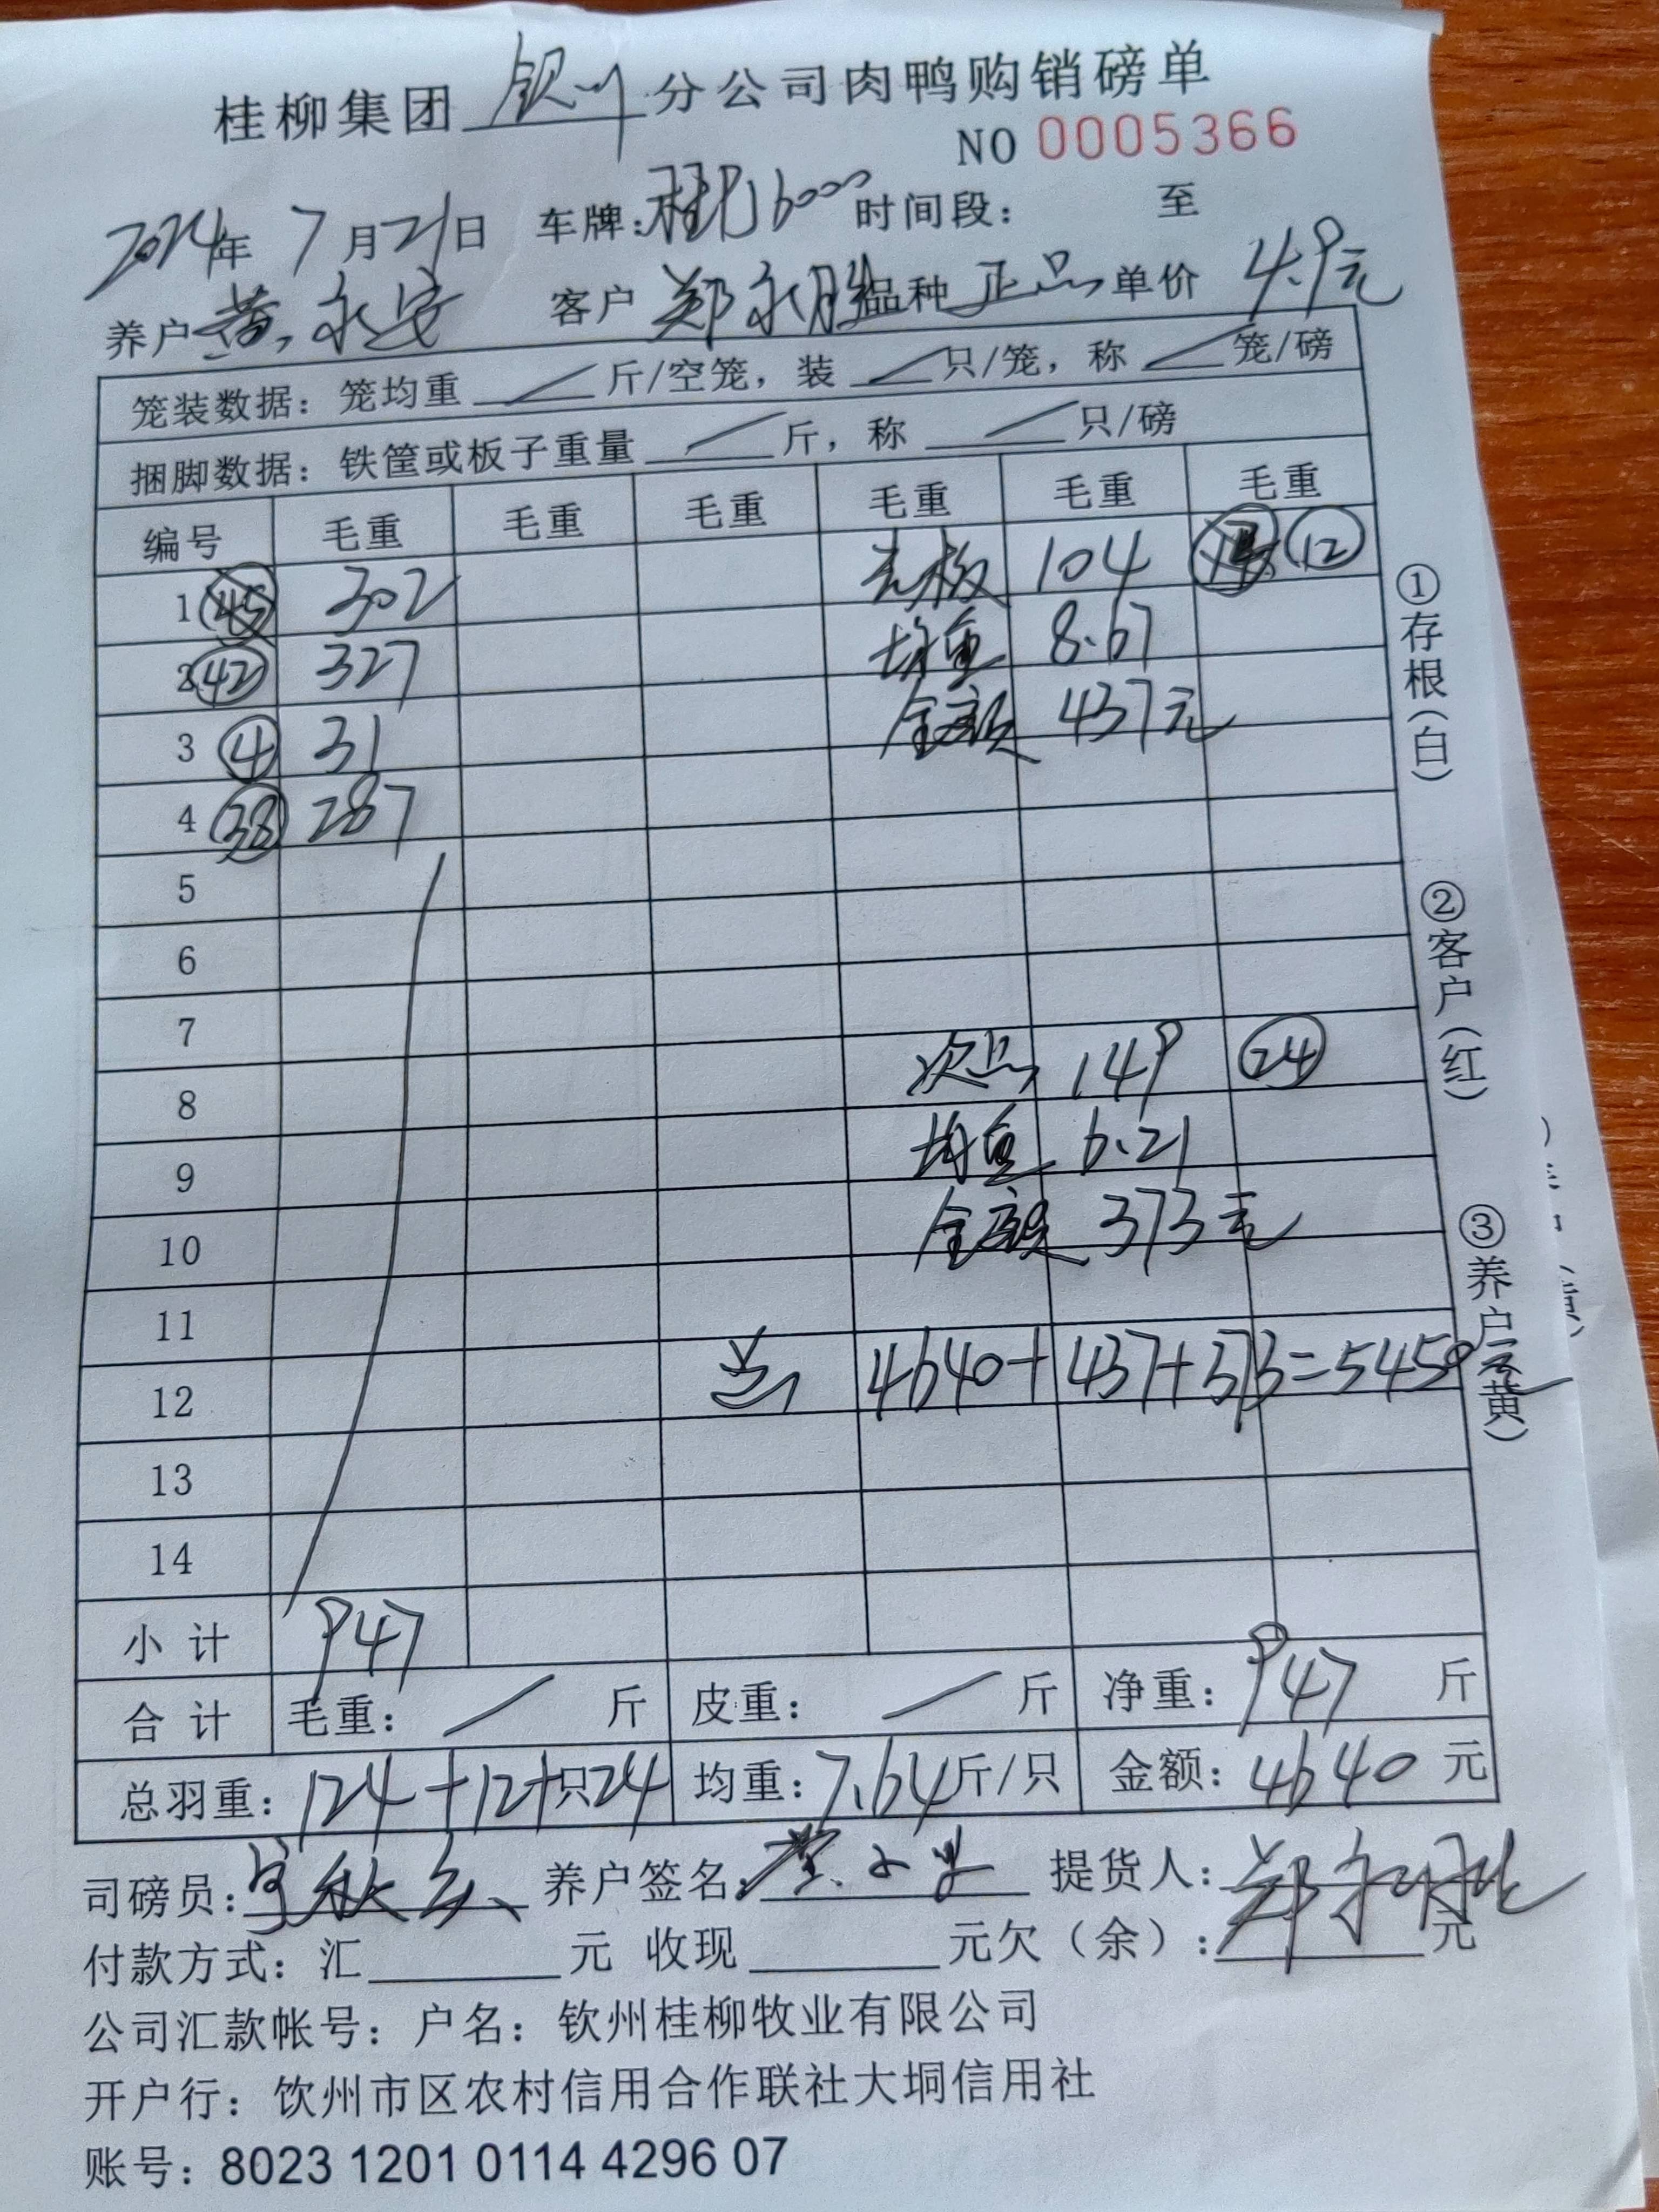 桂柳集团 钦州 分公司肉鸭购销磅单
NO 0005366
2024年 7月21日 车牌: 桂 6000 时间段: 至
养户 黄永安 客户 郑永胜 品种 正品 单价 4.9元
笼装数据: 笼均重 / 斤/空笼, 装 / 只/笼, 称 / 笼/磅
捆脚数据: 铁筐或板子重量 / 斤, 称 / 只/磅
编号 毛重 毛重 毛重 毛重 毛重 毛重
1 45 302 板 104 12
2 42 327 均重 8.67
3 4 31 金额 437元
4 38 287
5
6
7
8 次品 149 24
9 均重 6.21
10 金额 373元
11
12 共 4640+437+373=5450元
13
14
小计 947
合计 毛重: / 斤 皮重: / 斤 净重: 947 斤
总羽重: 124+12+只24 均重: 7.64斤/只 金额: 4640元
司磅员: 养户签名: 提货人: 郑永胜
付款方式: 汇 元 收现 元欠(余): 元
公司汇款帐号: 户名: 钦州桂柳牧业有限公司
开户行: 饮州市区农村信用合作联社大垌信用社
账号: 8023 1201 0114 4296 07
①存根(白)
②客户(红)
③养户(黄)